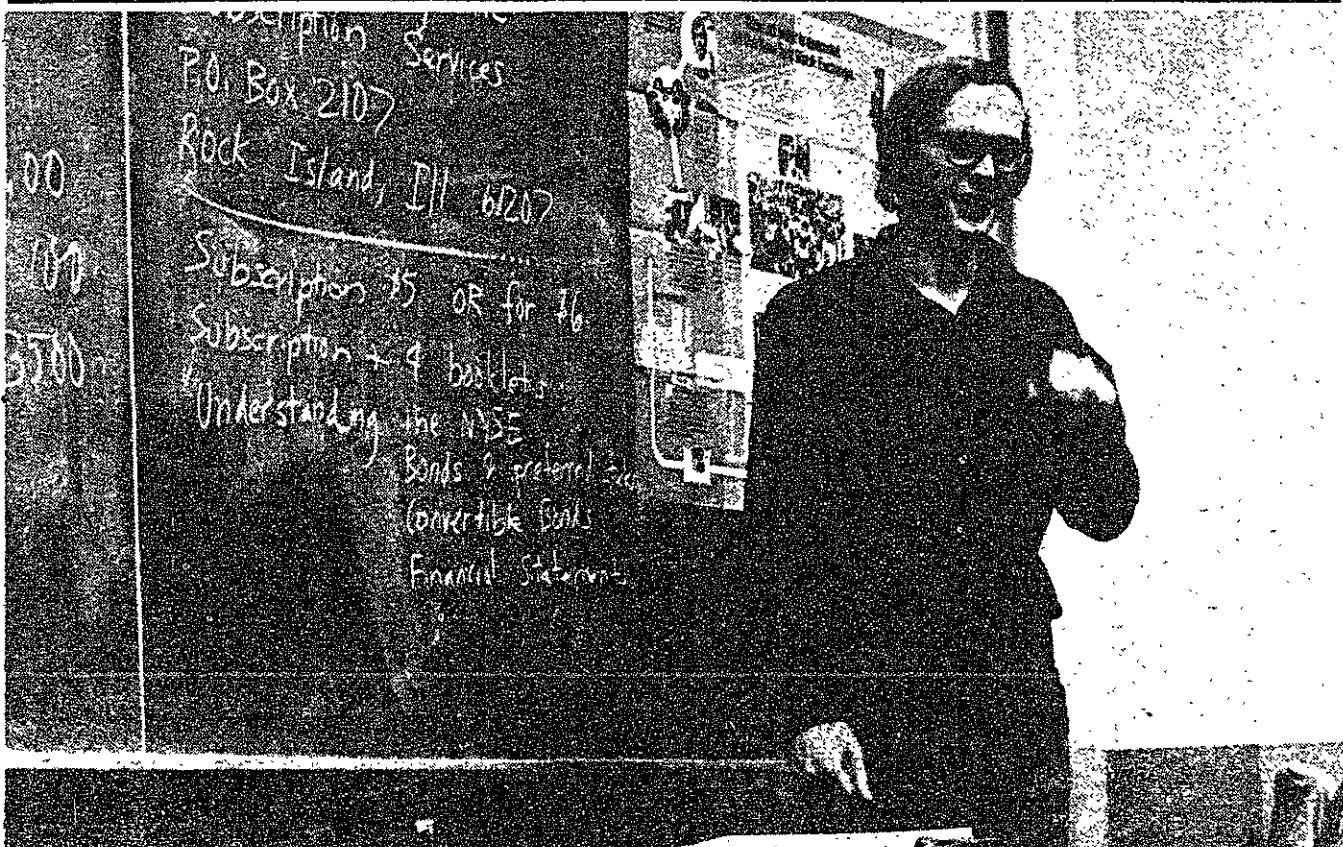 Services
P.O. Box 2107
Rock Island, Ill 61207
Subscription $5 OR for $6
Subscription + 4 booklets
"Understanding the NYSE
Bonds & preferred
Convertible Bonds
Financial Statements
.00
100
3500